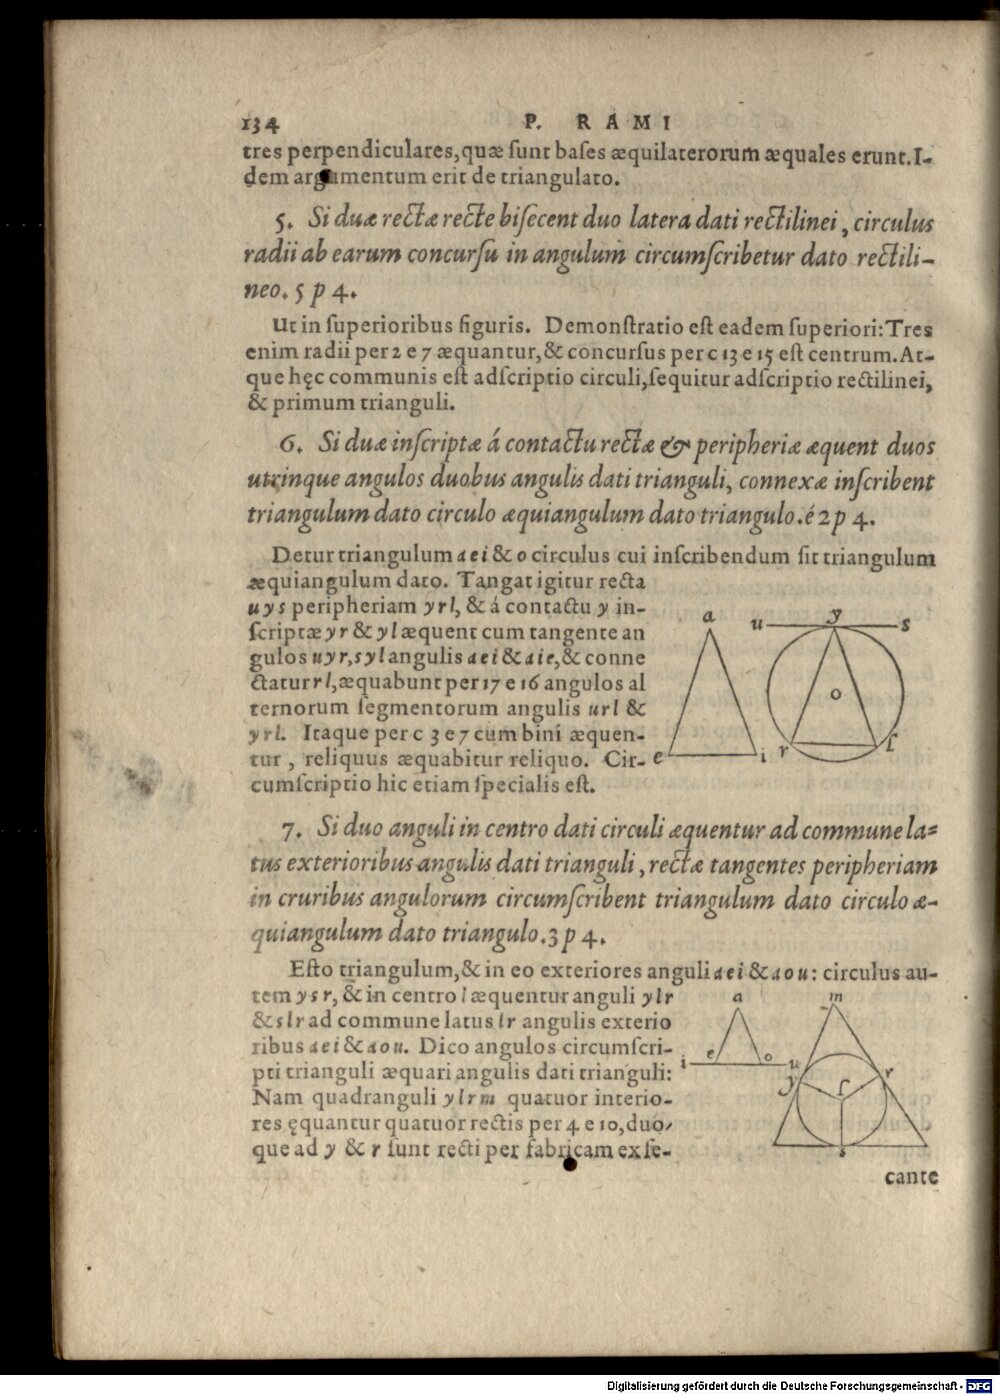 134 P. RAMI
tres perpendiculares, quæ ſunt baſes æquilaterorum æquales erunt. I-
dem argumentum erit de triangulato.
5. Si duæ rectæ recte biſecent duo latera dati rectilinei, circulus
radii ab earum concurſu in angulum circumſcribetur dato rectili-
neo. 5 p 4.
Ut in ſuperioribus figuris. Demonſtratio eſt eadem ſuperiori: Tres
enim radii per 2 e 7 æquantur, & concurſus per c 13 e 15 eſt centrum. At-
que hęc communis eſt adſcriptio circuli, ſequitur adſcriptio rectilinei,
& primum trianguli.
6. Si duæ inſcriptæ á contactu rectæ & peripheriæ æquent duos
utrinque angulos duobus angulis dati trianguli, connexæ inſcribent
triangulum dato circulo æquiangulum dato triangulo. é 2 p 4.
Detur triangulum aei & o circulus cui inſcribendum ſit triangulum
æquiangulum dato. Tangat igitur recta
uys peripheriam yrl, & á contactu y in-
ſcriptæ yr & yl æquent cum tangente an
gulos uyr, syl angulis aei & aie, & conne
ctatur rl, æquabunt per 17 e 16 angulos al
ternorum ſegmentorum angulis url &
yrl. Itaque per c 3 e 7 cum bini æquen-
tur, reliquus æquabitur reliquo. Cir-
cumſcriptio hic etiam ſpecialis eſt.
a u y s
o
e i r l
7. Si duo anguli in centro dati circuli æquentur ad commune la-
tus exterioribus angulis dati trianguli, rectæ tangentes peripheriam
in cruribus angulorum circumſcribent triangulum dato circulo æ-
quiangulum dato triangulo. 3 p 4.
Eſto triangulum, & in eo exteriores anguli aei & aou: circulus au-
tem ysr, & in centro l æquentur anguli ylr
& slr ad commune latus lr angulis exterio
ribus aei & aou. Dico angulos circumſcri-
pti trianguli æquari angulis dati trianguli:
Nam quadranguli ylrm quatuor interio-
res ęquantur quatuor rectis per 4 e 10, duo-
que ad y & r ſunt recti per fabricam ex ſe-
a m
i e o u
y l r
s
cante
Digitalisierung gefördert durch die Deutsche Forschungsgemeinschaft - DFG